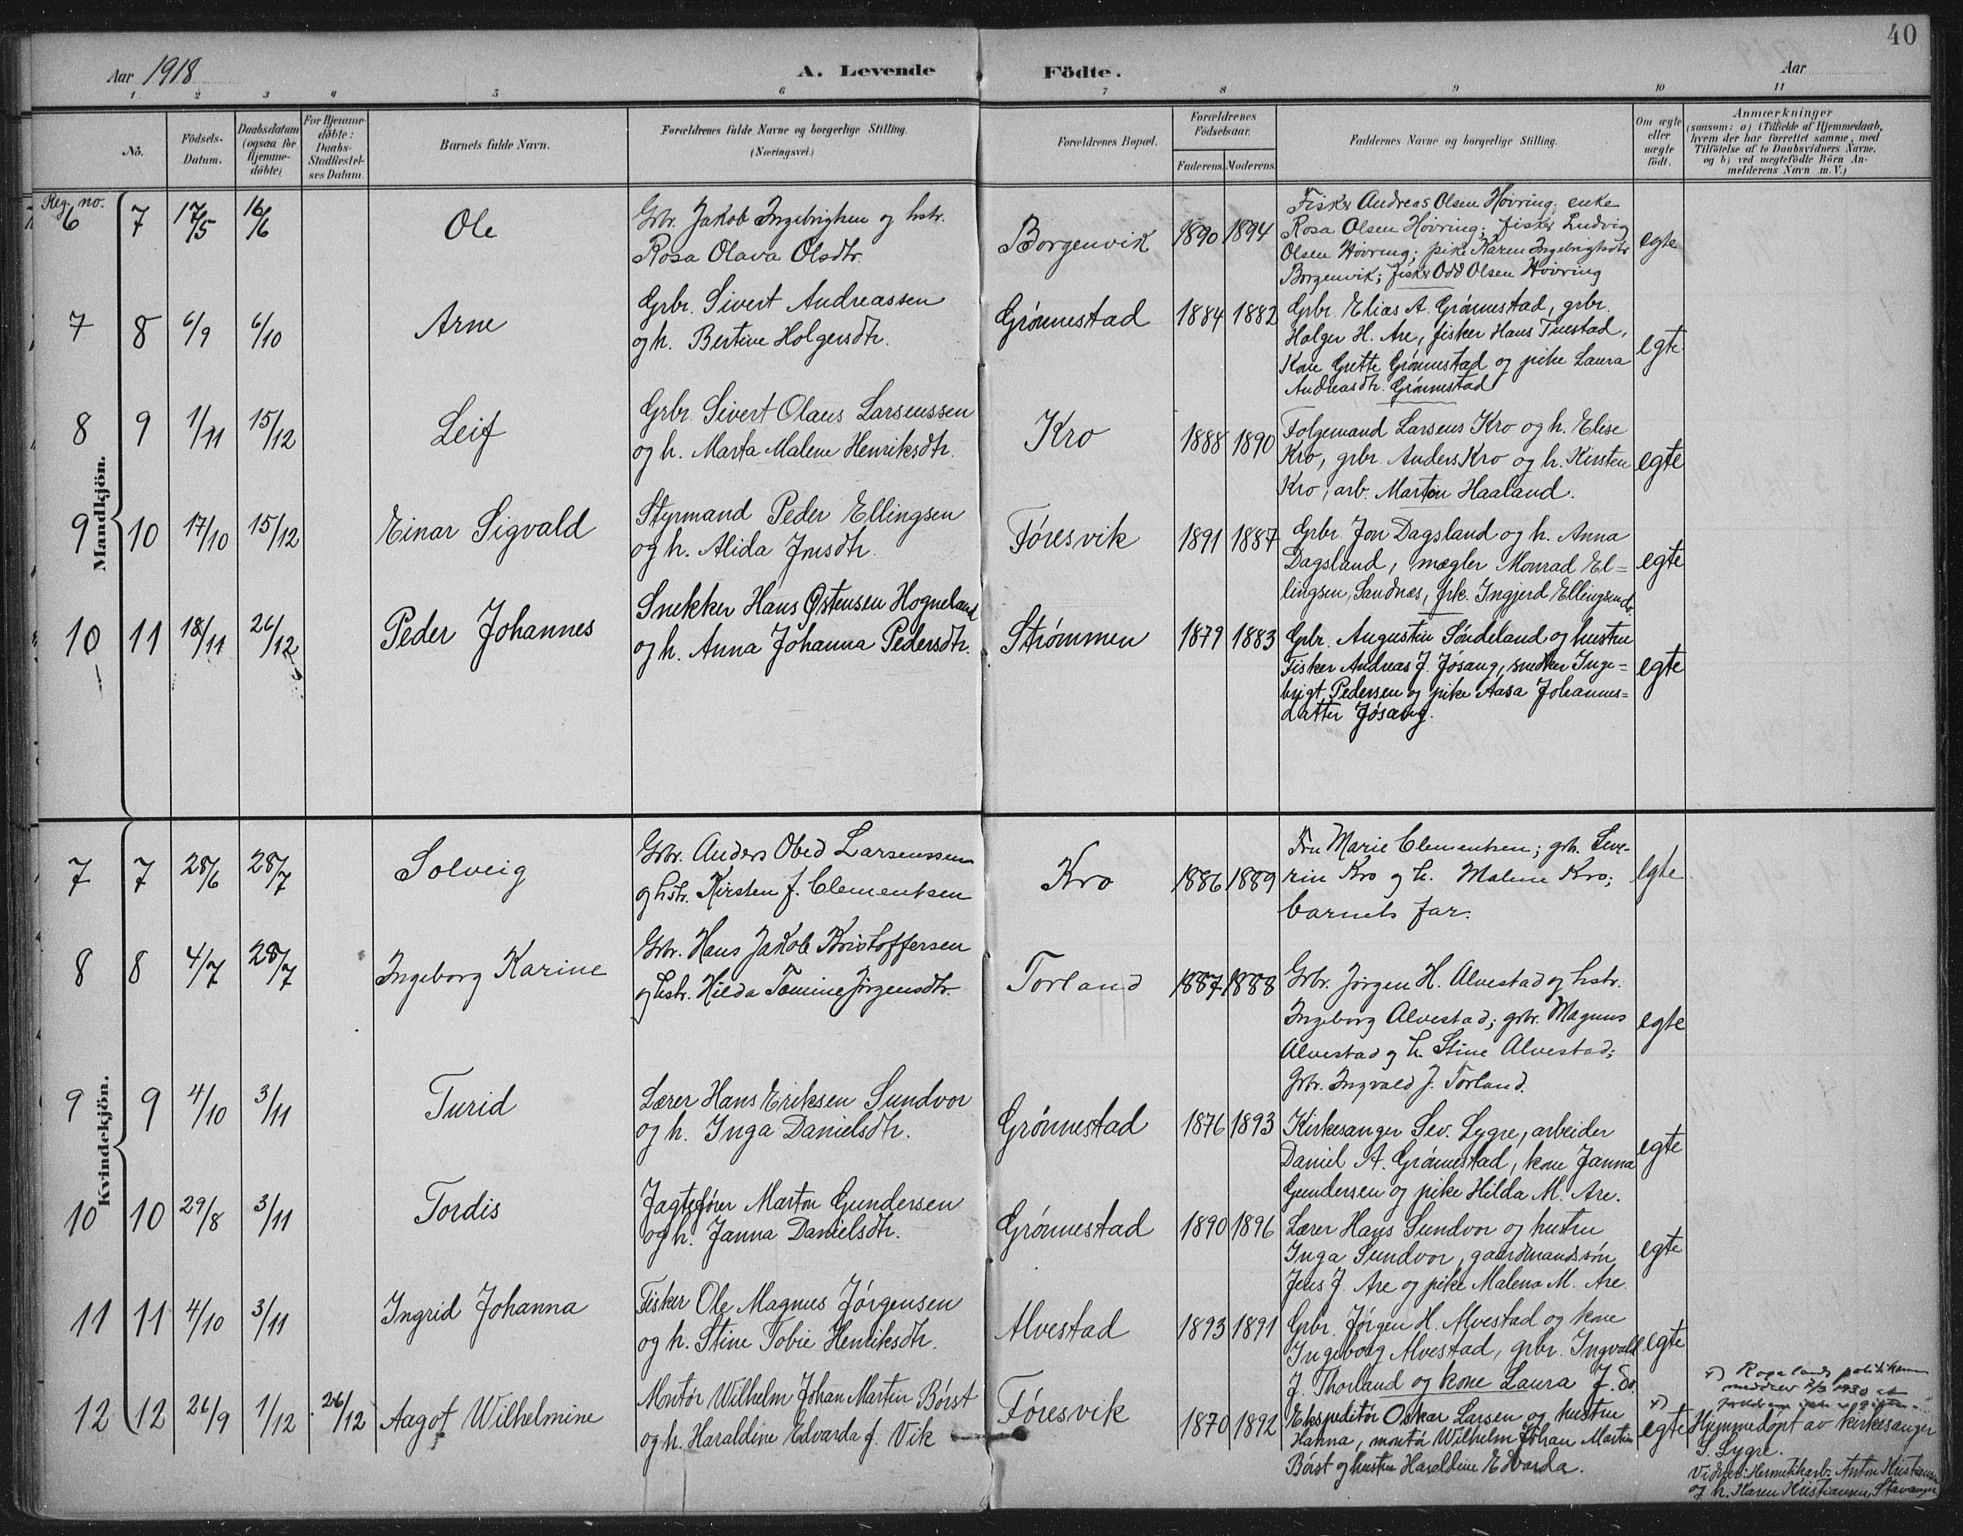 40
Aar 1918
A. Levende
Födte.
Aar
1 2 3 4 5 6 7 8 9 10 11
No.
Födsels-Datum.
Daabsdatum (ogsaa for Hjemme-döbte)
For Hjemme-döbte: Daabs-Stadfæstel-ses Datum.
Barnets fulde Navn.
Forældrenes fulde Navne og borgerlige Stilling.
(Næringsvei.)
Forældrenes Bopæl.
Forældrenes Födselsaar.
Faderens. Moderens.
Faddernes Navne og borgerlige Stilling.
Om ægte eller uægte födt.
Anmærkninger
(saasom: a) i Tilfælde af Hjemmedaab,
hvem der har forrettet samme, med
Tilföielse af to Daabsvidners Navne,
og b) ved uægtefödte Börn An-
melderens Navn m. V.)
Reg. no.
Mandkjön.
6 7 17/5 16/6 Ole
Grbr. Jakob Ingebrigtsen og hstr.
Rosa Olava Olsdtr.
Borgenvik 1890 1894
Fisker Andreas Olsen Høvring; enke
Rosa Olsen Høvring; fisker Ludvig
Olsen Høvring; pike Karen Ingebrigtsdtr
Borgenvik; fisker Odd Olsen Høvring
egte
7 8 6/9 6/10 Arne
Grbr. Sivert Andreassen
og h. Bertine Holgersdtr.
Grønnestad 1884 1882
Grbr. Elias A. Grønnestad, grbr.
Holger H. Are, fisker Hans Tuestad,
Kone Grette Grønnestad og pike Laura
Andreasdtr. Grønnestad
egte
8 9 1/11 15/12 Leif
Grbr. Sivert Olaus Larsenssen
og h. Marta Malene Henriksdtr.
Kro 1888 1890
Folgemand Larsens Kro og h. Elise
Kro, grbr. Anders Kro og h. Kirsten
Kro, arb. Marton Haaland.
egte
9 10 17/10 15/12 Einar Sigvald
Styrmand Peder Ellingsen
og h. Alida Jonsdtr.
Føresvik 1891 1887
Grbr. Jon Dagsland og h. Anna
Dagsland, mægler Monrad El=
lingsen, Sandnæs, frk. Ingjerd Ellingsen do.
egte
10 11 18/11 26/12 Peder Johannes
Snekker Hans Østensen Hogneland
og h. Anna Johanna Pedersdtr.
Strømmen 1879 1883
Grbr. Augustin Søndeland og hustru
Fisker Andreas J. Jøsang, snekker Inge=
brigt Pedersen og pike Aasa Johannes=
datter Jøsang.
egte
Kvindekjön.
7 7 28/6 28/7 Solveig
Grbr. Anders Obed Larsenssen
og hstr. Kirsten f. Clementsen
Kro 1886 1889
Fru Marie Clementsen; grbr. Seve-
rin Kro og h. Malene Kro;
barnets far.
egte
8 8 4/7 28/7 Ingeborg Karine
Grbr. Hans Jakob Kristoffersen
og hstr. Hilda Tomine Jørgensdtr.
Torland 1887 1888
Grbr. Jørgen H. Alvestad og hstr.
Ingeborg Alvestad; grbr. Magnus
Alvestad og h. Stine Alvestad;
Grbr. Ingvald J. Torland.
egte
9 9 4/10 3/11 Turid
Lærer Hans Eriksen Sundvor
og h. Inga Danielsdtr.
Grønnestad 1876 1893
Kirkesanger Sev. Lygre, arbeider
Daniel A. Grønnestad, kone Janna
Gundersen og pike Hilda M. Are.
egte
10 10 29/8 3/11 Tordis
Jagtefører Marton Gundersen
og h. Janna Danielsdtr.
Grønnestad 1890 1896
Lærer Hans Sundvor og hustru
Inga Sundvor, gaardmandssøn
Jens J. Are og pike Malena M. Are.
egte
11 11 4/10 3/11 Ingrid Johanna
Fisker Ole Magnus Jørgensen
og h. Stine Tobie Henriksdtr.
Alvestad 1893 1891
Grbr. Jørgen H. Alvestad og kone
Ingeborg Alvestad, grbr. Ingvald
J. Thorland og kone Laura J. do.
egte
12 12 26/9 1/12 26/12 Aagot Wilhelmine
Montør Wilhelm Johan Martin Børst
og h. Haraldine Edvarda f. Vik
Føresvik 1870 1892
Ekspeditør Oskar Larsen og hustru
Hanna, montør Wilhelm Johan Martin
Børst og hustru Haraldine Edvarda.
egte
Rogalands politikam
meddrev 1930 at
Hjemmedøpt av kirkesanger
S. Lygre.
Vidner: Hermetikkarb. Anton Kristiansen
og h. Karen Kristiansen, Stavanger